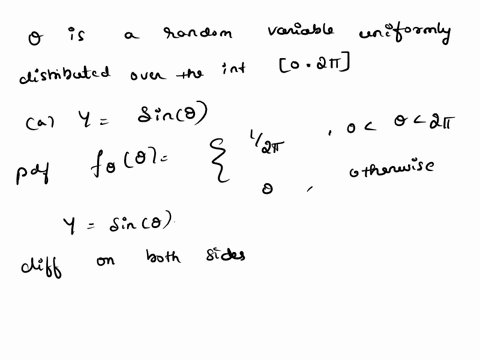 θ is a random variable uniformly
distributed over the int [0 . 2π]
(a) Y = Sin(θ)
pdf f_θ(θ) = { 1/2π , 0 < θ < 2π
0 , otherwise
Y = Sin(θ)
diff on both sides